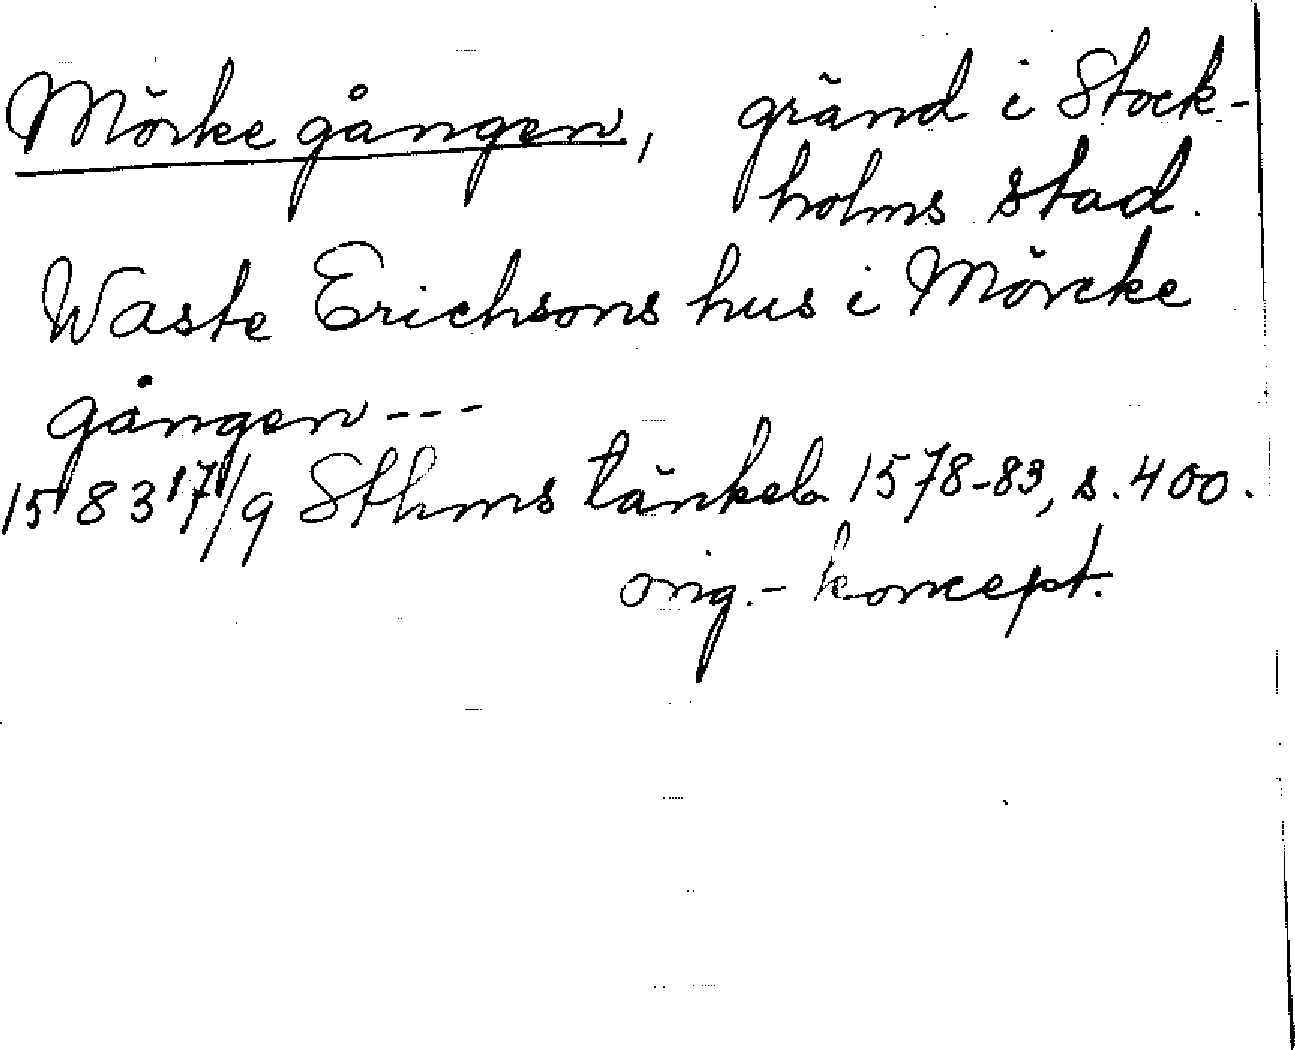 Mörke gången, gränd i Stock-
holms stad.
Waste Erichsons hus i Mörcke
gången ---
1583 17/9 Sthms tänkeb. 1578-83, s. 400.
orig.- koncept.